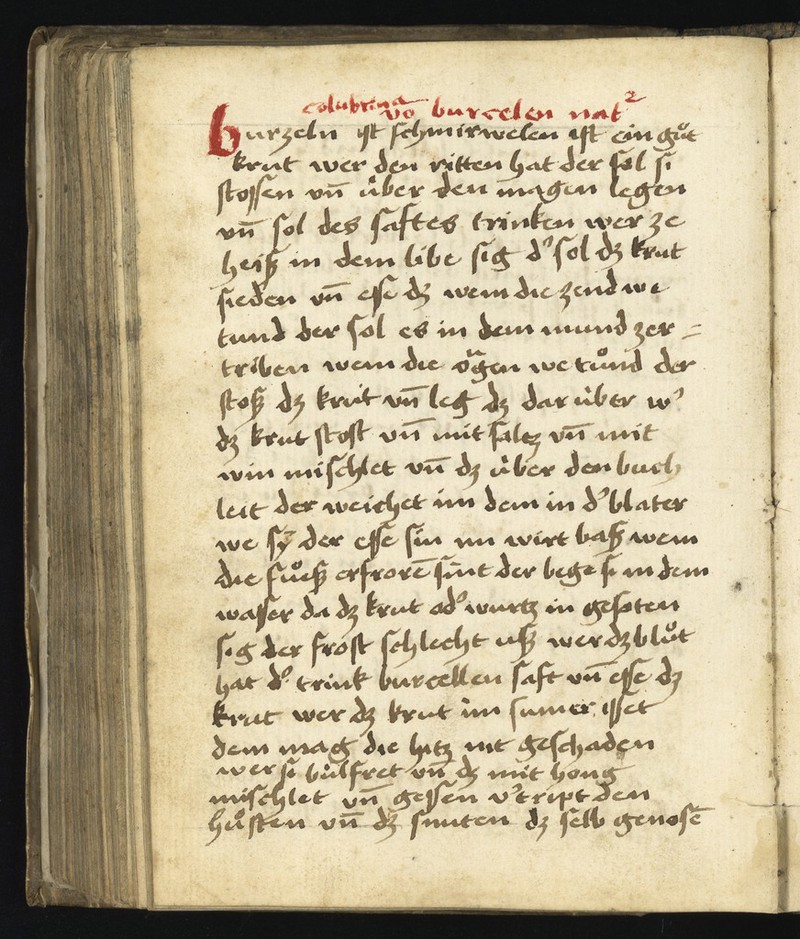 colubrina
vō burcelen nat²
burzeln ist schmirwelen ist ein guͦt
krut wer den ritten hat der sol si
stossen vn̄ uͤber den magen legen
vn̄ sol des saftes trinken wer ze
heiß in dem libe sig dʼ sol dz krut
sieden vn̄ esse dz wem die zend we
tund der sol es in dem mund zer=
triben wem die oͮgen we tuͦnd der
stoß dz krut vn̄ leg dz dar uͤber wʼ
dz krut stost vn̄ mit saltz vn̄ mit
win mischlet vn̄ dz uͤber den buch
leit der weichet im dem in dʼ blater
we sy der esse sin im wirt baß wem
die fuͤß erfrorē sint der bege si in dem
wasser da dz krut odʼ wurtz in gesoten
sig der frost schlecht uß wer dz bluͦt
hat dʼ trink burcellen saft vn̄ esse dz
krut wer dz krut im sumer isset
dem mag die hitz nit geschaden
wer si bulfret vn̄ dz mit hong
mischlet vn̄ gessen vʼtript den
huͦsten vn̄ dz sunten dz selb genosē